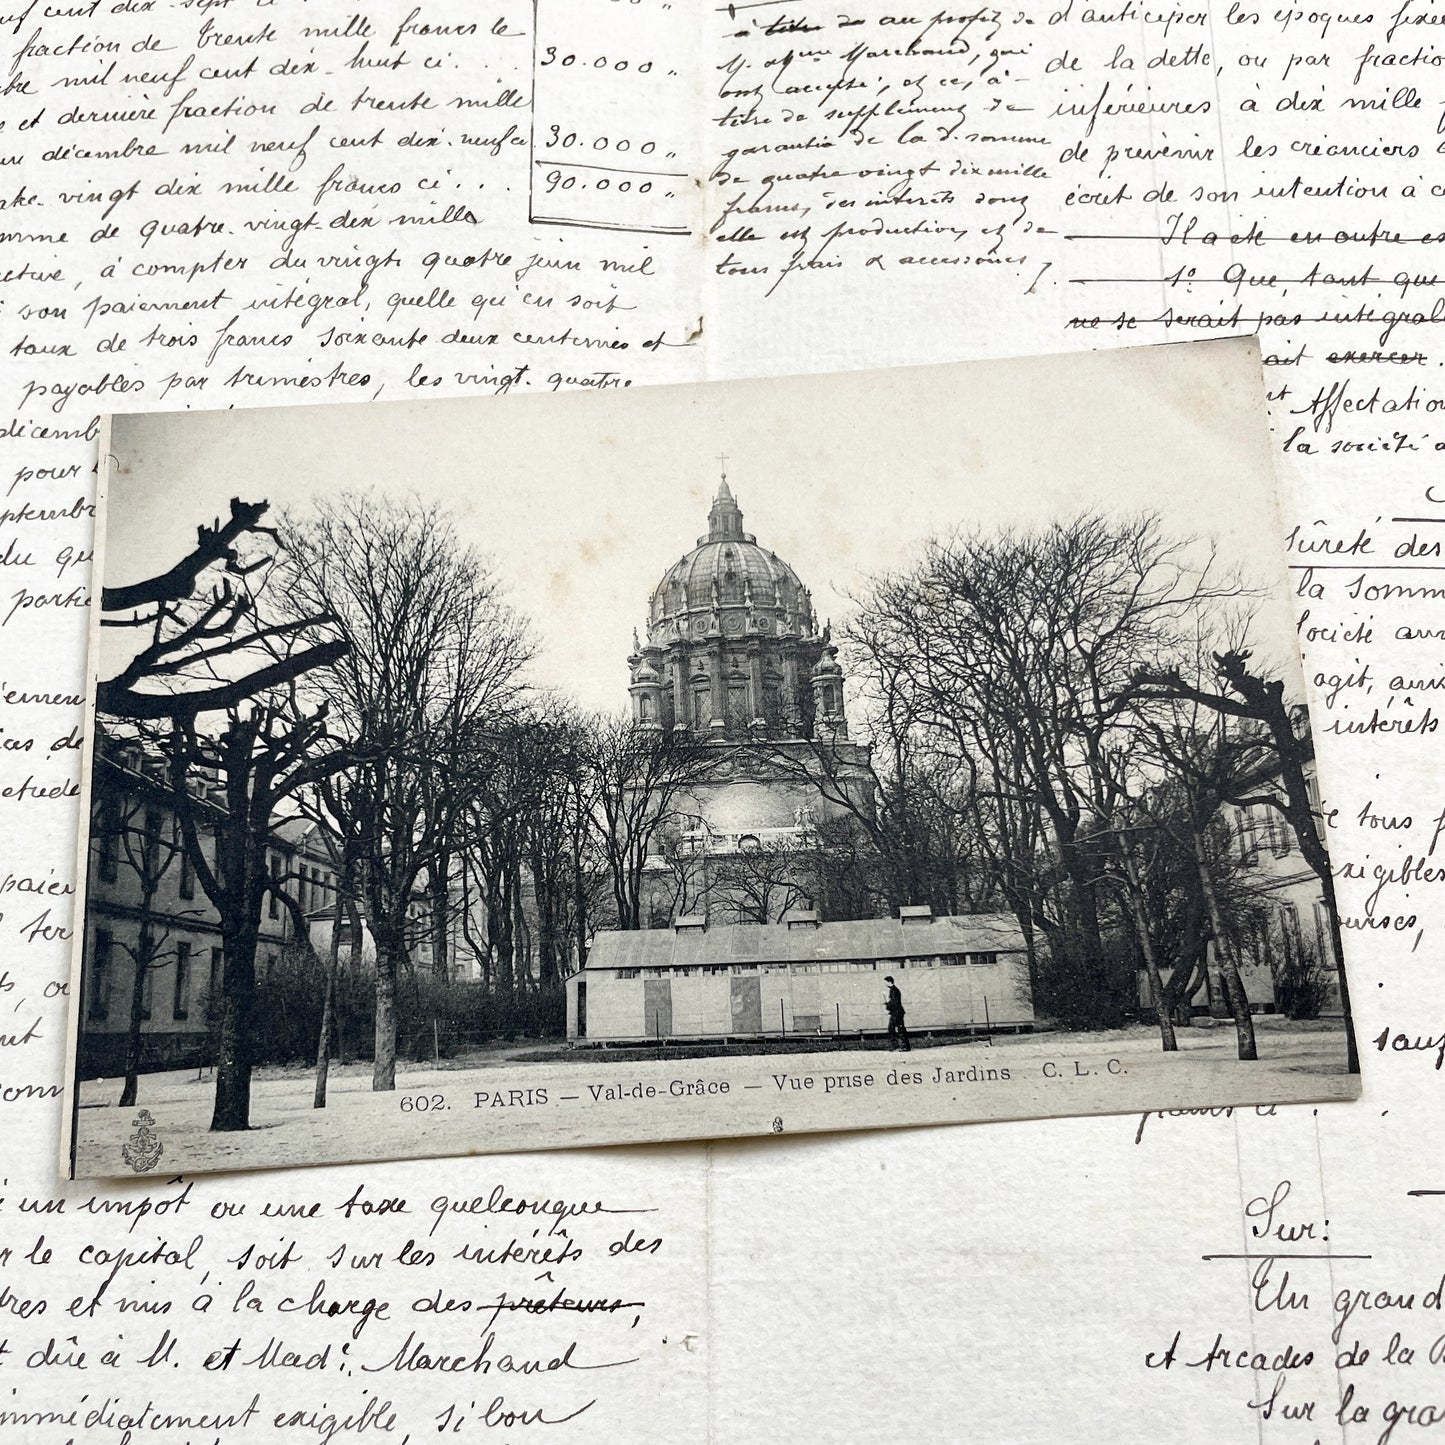 fraction de trente mille francs le
mil neuf cent dix-huit ci. . . .
30.000 „
et dernière fraction de trente mille
décembre mil neuf cent dix-neuf ci
30.000 „
vingt dix mille francs ci . . .
90.000 „
de quatre-vingt-dix mille
à compter du vingt quatre juin mil
son paiement intégral, quelle qu'en soit
taux de trois francs soixante deux centimes et
payables par trimestres, les vingt-quatre
pour
du
à titre de au profit de
M. et Mme Marchand, qui
ont accepté, et ce, à
titre de supplément de
garantie de la d. somme
de quatre vingt dix mille
francs, des intérêts dont
elle est productive, et de
tous frais & accessoires
d'anticiper les époques
de la dette, ou par
inférieures à dix mille
de prévenir les créanciers
écrit de son intention à
Il a été en outre
1º Que, tant que
ne se serait pas
ait exercer.
Affectation
la société
sûreté des
la
agit,
intérêts
tous
exigibles
602. PARIS — Val-de-Grâce — Vue prise des Jardins C. L. C.
un impôt ou une taxe quelconque
le capital, soit sur les intérêts des
et mis à la charge des prêteurs,
dûe à M. et Mad.e Marchand
exigible, si bon
Sur:
Un grand
et Arcades de la
Sur la